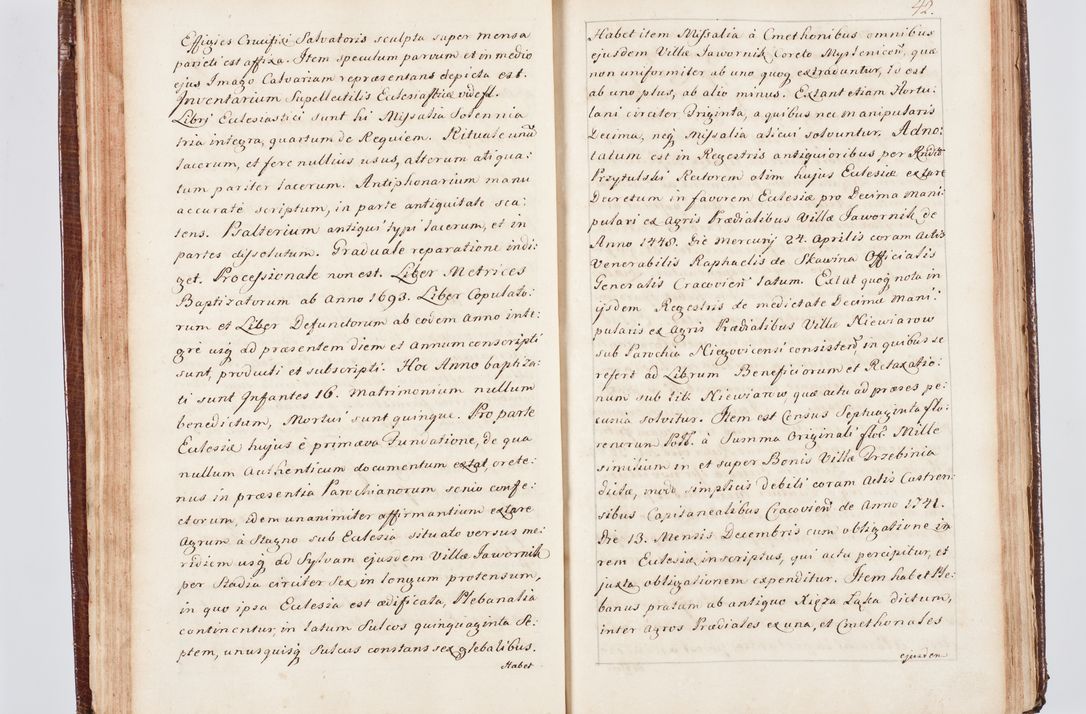 Effigies Crucifixi Salvatoris sculpta super mensa
parieti est affixa. Item speculum parvum et in medio
ejus Imago Calvariam repræsentans depicta est.
Inventarium Supellectilis Ecclesiasticæ vide fl.
Librj Ecclesiastici sunt hi Missalia Solennia
tria integra, quartum de Requiem. Rituale unū
lacerum, et fere nullius usus, alterum aliqua:
tum pariter lacerum. Antiphonarium manu
accuratè scriptum, in parte antiquitate sca:
tens. Psalterium antiqui typi lacerum, et in
partes dissolutum. Graduale reparatione indi:
get. Processionale non est. Liber Metrices
Baptizatorum ab Anno 1693. Liber Copulato:
rum et Liber Defunctorum ab eodem Anno inte:
grè usq ad præsentem diem et annum conscripti
sunt, producti et subscripti. Hoc Anno baptiza:
ti sunt Infantes 16. Matrimonium nullum
benedictum, Mortui sunt quinque. Pro parte
Ecclesiæ hujus è primæva Fundatione, de qua
nullum Authenticum documentum extat, orete:
nus in præsentia Parochianorum senio confe:
ctorum, idem unanimiter affirmantium extare
Agrum à Stagno sub Ecclesia situato versus me:
ridiem usq ad Sylvam ejusdem Villæ Jawornik
per Stadia circiter sex in longum protensum,
in quo ipsa Ecclesia est ædificata, Plebanalia
continentur, in latum Sulcos quinquaginta Se:
ptem, unusquisq Sulcus constans sex glebalibus.
Habet
42.
Habet item Missalia à Cmethonibus omnibus
ejusdem Villæ Jawornik Coreto Myslenicen, quæ
non uniformiter ab uno quoq extraduntur, id est
ab uno plus, ab alio minus. Extant etiam Hortu:
lani circiter Triginta, a quibus nec manipularis
Decima, neq Missalia alicui solvuntur. Adno:
tatum est in Regestris antiquioribus per Rndū
Przytulski Rectorem olim hujus Ecclesiæ extare
Decretum in favorem Ecclesiæ pro Decima mani:
pulari ex Agris Prædialibus Villæ Jawornik de
Anno 1448. Die Mercurij 24. Aprilis coram Actis
Venerabilis Raphaelis de Skawina Officialis
Generalis Cracovien latum. Extat quoq nota in
ijsdem Regestris de medietate Decimæ mani:
pularis ex Agris Prædialibus Villæ Niewiarow
sub Parochia Niegovicensi consisten in quibus se
refert ad Librum Beneficiorum et Retaxatio:
num sub tit: Niewiarow quæ actu ad præses pe:
cunia solvitur. Item est Census Septuaginta flo:
renorum Poll. à Summa Originali floc. Mille
similium in et super Bonis Villæ Trzebinia
dictæ, modo simplicis debiti coram Actis Castren:
sibus Capitanealibus Cracovien de Anno 1741.
Die 13. Mensis Decembris cum obligatione in
rem Ecclesiæ inscriptus, qui actu percipitur, et
juxta obligationem expenditur. Item habet Ple:
banus pratum ab antiquo Xięza Laka dictum,
inter Agros Prædiales ex una, et Cmethonales
ejusdem